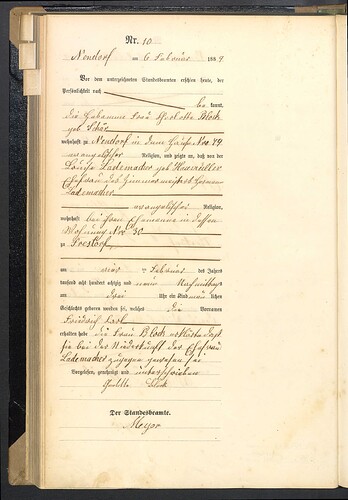 Nr. 10
Nendorf am 6 Februar 1889.
Vor dem unterzeichneten Standesbeamten erschien heute, der
Persönlichkeit nach
be kannt,
die Hebamme Frau Block
geb
wohnhaft zu Nendorf in dem Hause Nro 44
evangelischer Religion, und zeigte an, daß von der
Louise Lademacher geb
Ehefrau des Zimmermeisters Hermann
Lademacher
evangelischer Religion,
wohnhaft bei ihrem Ehemanne in dessen
Wohnung Nro 30
zu
am vier ten Februar des Jahres
tausend acht hundert achtzig und neun Nachmittags
um drei Uhr ein Kind männlichen
Geschlechts geboren worden sei, welches die Vornamen
Friedrich Karl
erhalten habe die Frau Block erklärte daß
sie bei der Niederkunft der Ehefrau
Lademacher zugegen gewesen sei
Vorgelesen, genehmigt und unterschrieben
Block
Der Standesbeamte.
Meyer